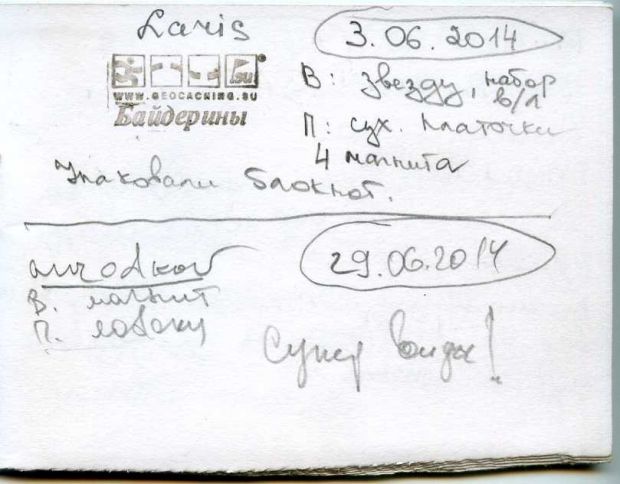 Laris
3.06.2014
.SU
WWW.GEOCACHING.SU
Байдерины
В: звезду, набор
в/л
П: сух. платочки
4 магнита
Упаковали блокнот.
29.06.2014
В. магнит
П.
Супер виды!